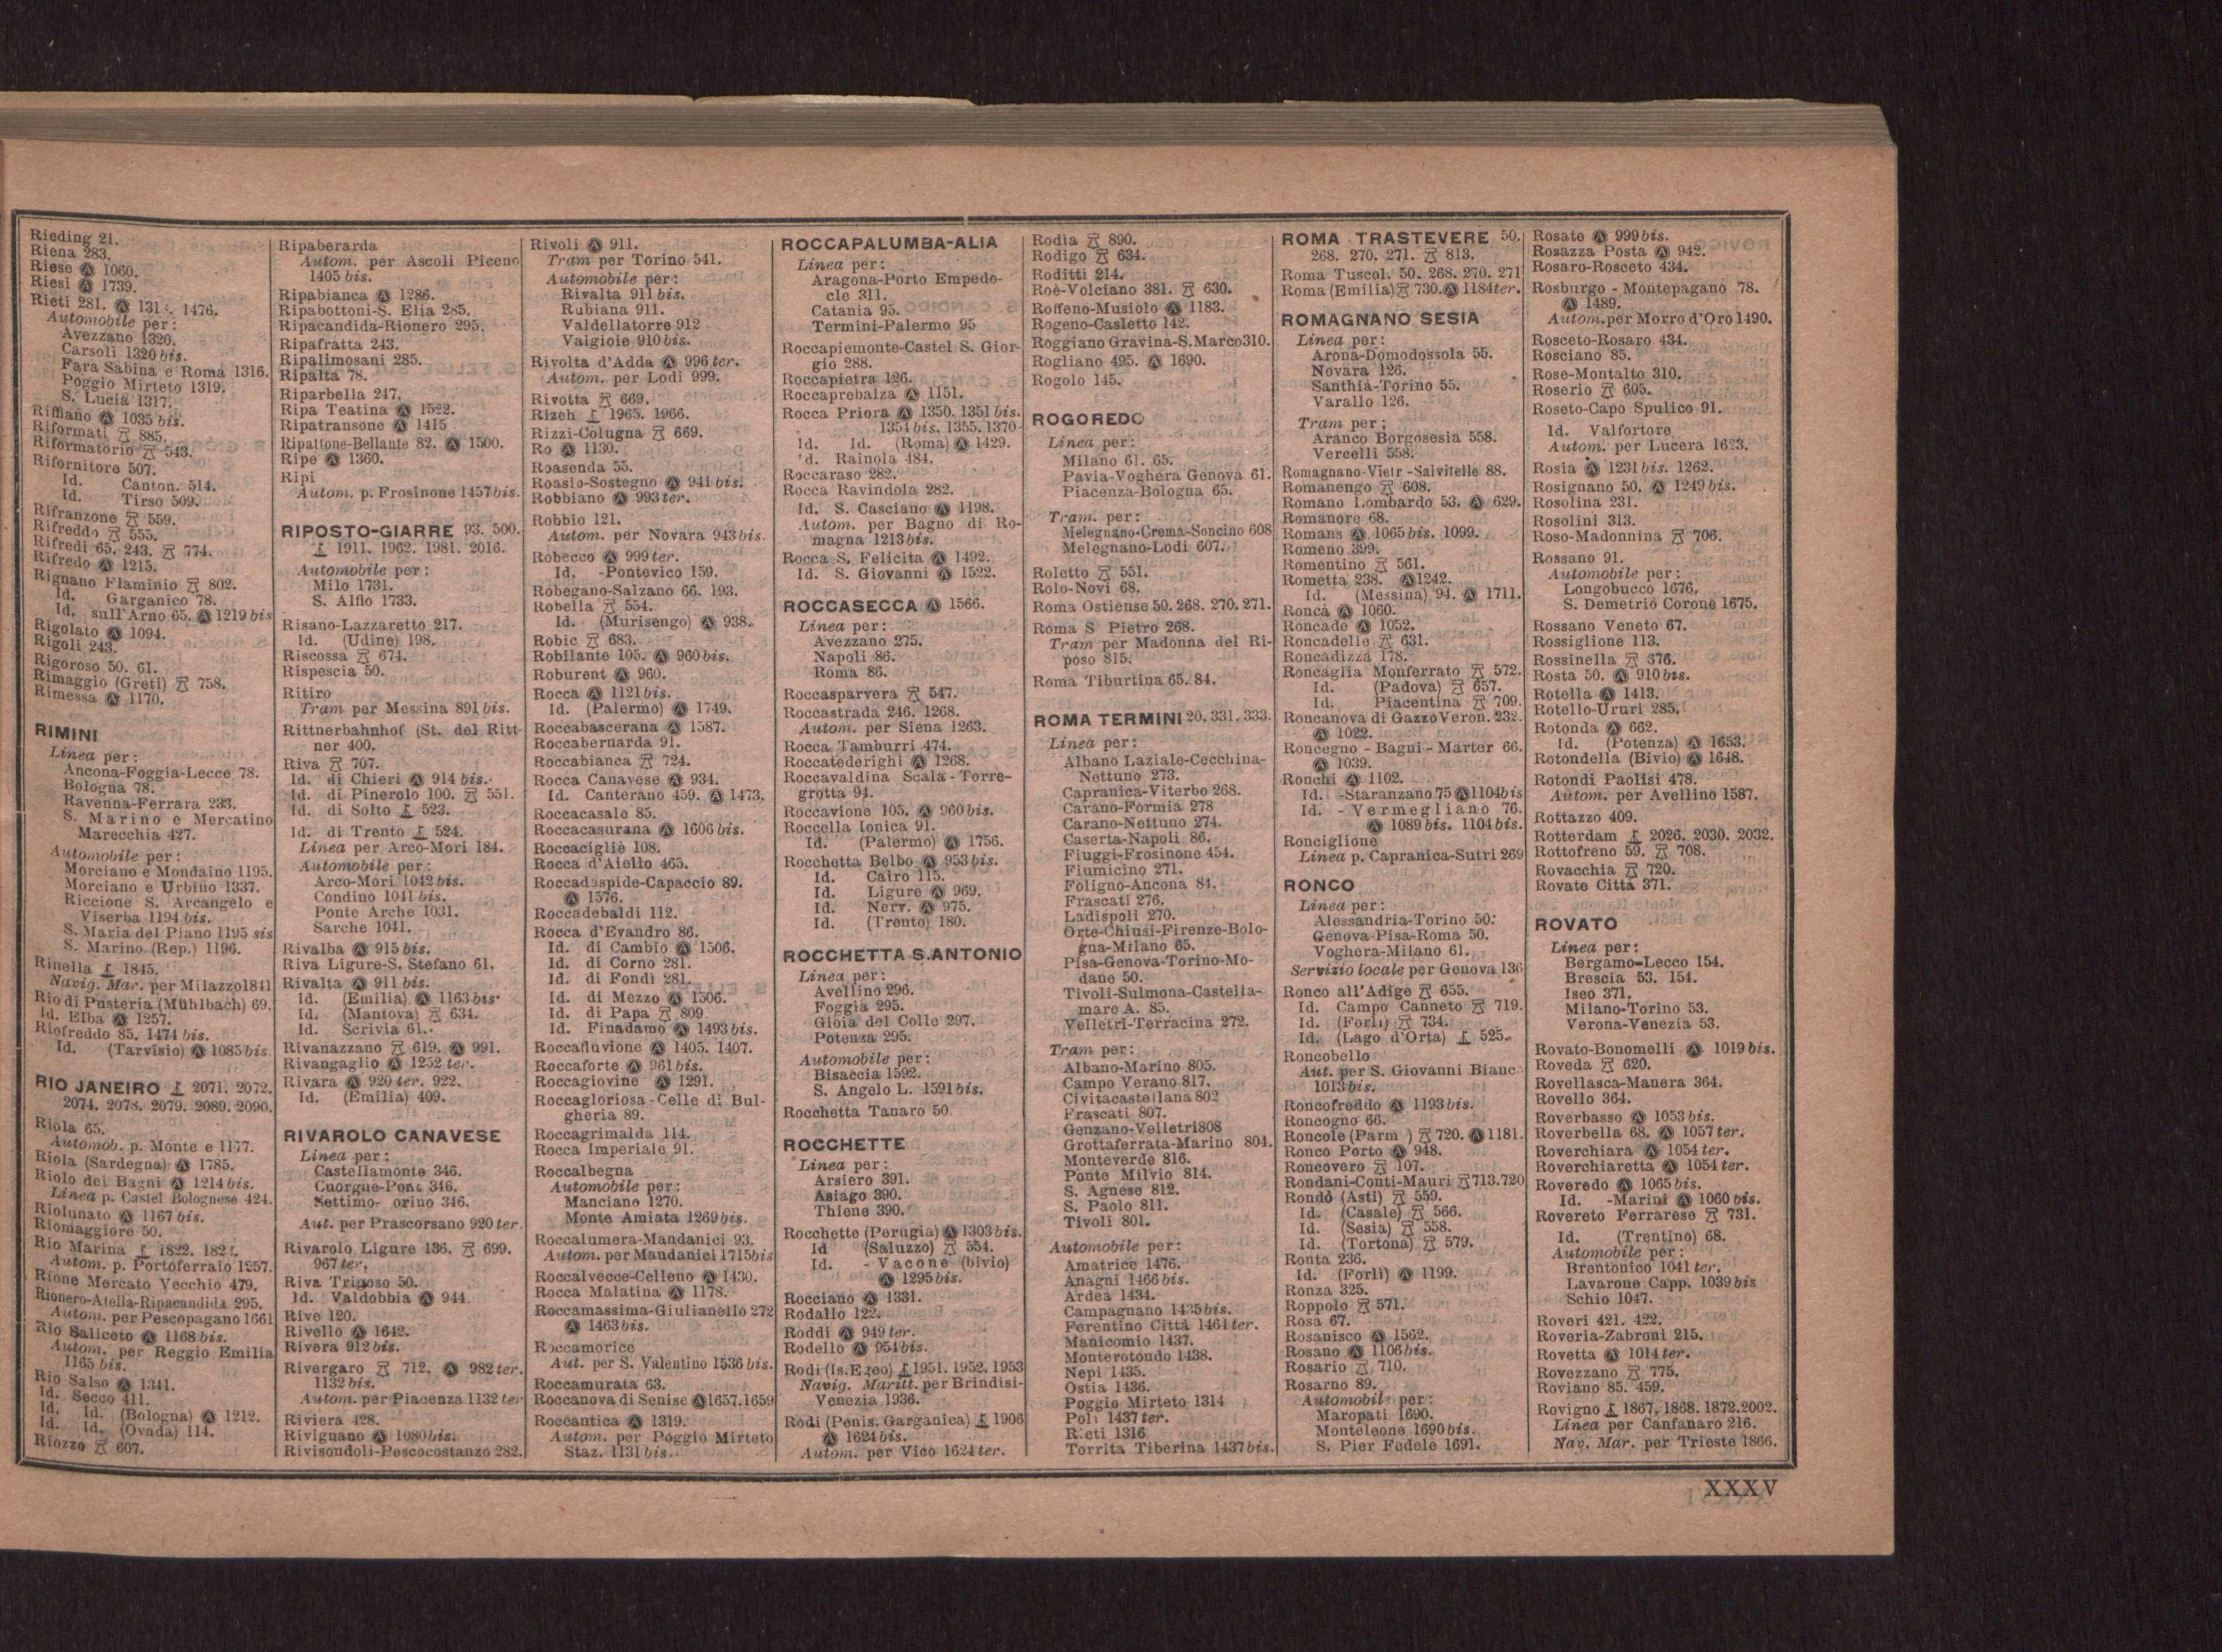 Rieding 21.
Riena 283.
Riese Ⓐ 1060.
Riesi Ⓐ 1739.
Rieti 281. Ⓐ 1476.
Automobile per:
Avezzano 1320.
Carsoli 1320 bis.
Fara Sabina e Roma 1316.
Poggio Mirteto 1319.
S. Lucia 1317.
Riffiano Ⓐ 1035 bis.
Riformati 885.
Riformatorio 543.
Rifornitore 507.
Id. Canton. 514.
Id. Tirso 509.
Rifranzone 559.
Rifreddo 555.
Rifredi 65. 243. 774.
Rifredo Ⓐ 1215.
Rignano Flaminio 802.
Id. Garganico 78.
Id. sull'Arno 65. Ⓐ 1219 bis
Rigolato Ⓐ 1094.
Rigoli 243.
Rigoroso 50. 61.
Rimaggio (Greti) 758.
Rimessa Ⓐ 1170.
RIMINI
Linea per:
Ancona-Foggia-Lecce 78.
Bologna 78.
Ravenna-Ferrara 233.
S. Marino e Mercatino
Marecchia 427.
Automobile per:
Morciano e Mondaino 1195.
Morciano e Urbino 1337.
Riccione S. Arcangelo e
Viserba 1194 bis.
S. Maria del Piano 1195 sis
S. Marino (Rep.) 1196.
Rinella 1845.
Navig. Mar. per Milazzo 1841
Rio di Pusteria (Mühlbach) 69.
Id. Elba Ⓐ 1257.
Riofreddo 85. 1474 bis.
Id. (Tarvisio) Ⓐ 1085 bis
RIO JANEIRO 2071. 2072.
2074. 2078. 2079. 2089. 2090.
Riola 65.
Automob. p. Monte e 1177.
Riola (Sardegna) Ⓐ 1785.
Riolo dei Bagni Ⓐ 1214 bis.
Linea p. Castel Bolognese 424.
Riolunato Ⓐ 1167 bis.
Riomaggiore 50.
Rio Marina 1822.
Autom. p. Portoferraio 1257.
Rione Mercato Vecchio 479.
Rionero-Atella-Ripacandida 295.
Autom. per Pescopagano 1661
Rio Saliceto Ⓐ 1168 bis.
Autom. per Reggio Emilia
1165 bis.
Rio Salso Ⓐ 1341.
Id. Secco 411.
Id. Id. (Bologna) Ⓐ 1212.
Id. Id. (Ovada) 114.
Riozzo 607.
Ripaberarda
Autom. per Ascoli Piceno
1405 bis.
Ripabianca Ⓐ 1286.
Ripabottoni-S. Elia 285.
Ripacandida-Rionero 295.
Ripafratta 243.
Ripalimosani 285.
Ripalta 78.
Riparbella 247.
Ripa Teatina Ⓐ 1522.
Ripatransone Ⓐ 1415
Ripattone-Bellante 82. Ⓐ 1500.
Ripe Ⓐ 1360.
Ripi
Autom. p. Frosinone 1457 bis.
RIPOSTO-GIARRE 93. 500.
1911. 1962. 1981. 2016.
Automobile per:
Milo 1731.
S. Alfio 1733.
Risano-Lazzaretto 217.
Id. (Udine) 198.
Riscossa 674.
Rispescia 50.
Ritiro
Tram per Messina 891 bis.
Rittnerbahnhof (St. del Ritt-
ner 400.
Riva 707.
Id. di Chieri Ⓐ 914 bis.
Id. di Pinerolo 100. 551.
Id. di Solto 523.
Id. di Trento 524.
Linea per Arco-Mori 184.
Automobile per:
Arco-Mori 1042 bis.
Condino 1041 bis.
Ponte Arche 1031.
Sarche 1041.
Rivalba Ⓐ 915 bis.
Riva Ligure-S. Stefano 61.
Rivalta Ⓐ 911 bis.
Id. (Emilia) Ⓐ 1163 bis
Id. (Mantova) 634.
Id. Scrivia 61.
Rivanazzano 619. Ⓐ 991.
Rivangaglio Ⓐ 1252 ter.
Rivara Ⓐ 920 ter. 922.
Id. (Emilia) 409.
RIVAROLO CANAVESE
Linea per:
Castellamonte 346.
Cuorgnè-Pont 346.
Settimo- orino 346.
Aut. per Prascorsano 920 ter.
Rivarolo Ligure 136. 699.
967 ter.
Riva Trigoso 50.
Id. Valdobbia Ⓐ 944.
Rive 120.
Rivello Ⓐ 1642.
Rivera 912 bis.
Rivergaro 712. Ⓐ 982 ter.
1132 bis.
Autom. per Piacenza 1132 ter
Riviera 428.
Rivignano Ⓐ 1080 bis.
Rivisondoli-Pescocostanzo 282.
Rivoli Ⓐ 911.
Tram per Torino 541.
Automobile per:
Rivalta 911 bis.
Rubiana 911.
Valdellatorre 912
Valgioie 910 bis.
Rivolta d'Adda Ⓐ 996 ter.
Autom. per Lodi 999.
Rivotta 669.
Rizeh 1965. 1966.
Rizzi-Colugna 669.
Ro Ⓐ 1130.
Roasenda 55.
Roasio-Sostegno Ⓐ 941 bis.
Robbiano Ⓐ 993 ter.
Robbio 121.
Autom. per Novara 943 bis.
Robecco Ⓐ 999 ter.
Id. -Pontevico 159.
Robegano-Salzano 66. 193.
Robella 554.
Id. (Murisengo) Ⓐ 938.
Robic 683.
Robilante 105. Ⓐ 960 bis.
Roburent Ⓐ 960.
Rocca Ⓐ 1121 bis.
Id. (Palermo) Ⓐ 1749.
Roccabascerana Ⓐ 1587.
Roccabernarda 91.
Roccabianca 724.
Rocca Canavese Ⓐ 934.
Id. Canterano 459. Ⓐ 1473.
Roccacasale 85.
Roccacasurana Ⓐ 1606 bis.
Roccacigliè 108.
Rocca d'Aiello 465.
Roccadaspide-Capaccio 89.
Ⓐ 1576.
Roccadebaldi 112.
Rocca d'Evandro 86.
Id. di Cambio Ⓐ 1506.
Id. di Corno 281.
Id. di Fondi 281.
Id. di Mezzo Ⓐ 1506.
Id. di Papa 809
Id. Finadamo Ⓐ 1493 bis.
Roccafluvione Ⓐ 1405. 1407.
Roccaforte Ⓐ 961 bis.
Roccagiovine Ⓐ 1291.
Roccagloriosa-Celle di Bul-
gheria 89.
Roccagrimalda 114.
Rocca Imperiale 91.
Roccalbegna
Automobile per:
Manciano 1270.
Monte Amiata 1269 bis.
Roccalumera-Mandanici 93.
Autom. per Mandanici 1715 bis
Roccalvecce-Celleno Ⓐ 1430.
Rocca Malatina Ⓐ 1178.
Roccamassima-Giulianello 272
Ⓐ 1463 bis.
Roccamorice
Aut. per S. Valentino 1536 bis.
Roccamurata 63.
Roccanova di Senise Ⓐ 1657. 1659
Roccantica Ⓐ 1319.
Autom. per Poggio Mirteto
Staz. 1131 bis.
ROCCAPALUMBA-ALIA
Linea per:
Aragona-Porto Empedo-
cle 311.
Catania 95.
Termini-Palermo 95
Roccapiemonte-Castel S. Gior-
gio 288.
Roccapietra 126.
Roccaprebalza Ⓐ 1151.
Rocca Priora Ⓐ 1350. 1351 bis.
1354 bis. 1355. 1370
Id. Id. (Roma) Ⓐ 1429.
'd. Rainola 484.
Roccaraso 282.
Rocca Ravindola 282.
Id. S. Casciano Ⓐ 1198.
Autom. per Bagno di Ro-
magna 1213 bis.
Rocca S. Felicita Ⓐ 1492.
Id. S. Giovanni Ⓐ 1522.
ROCCASECCA Ⓐ 1566.
Linea per:
Avezzano 275.
Napoli 86.
Roma 86.
Roccasparvera 547.
Roccastrada 246. 1268.
Autom. per Siena 1263.
Rocca Tamburri 474.
Roccatederighi Ⓐ 1268.
Roccavaldina Scala-Torre-
grotta 94.
Roccavione 105. Ⓐ 960 bis.
Roccella Ionica 91.
Id. (Palermo) Ⓐ 1756.
Rocchetta Belbo Ⓐ 953 bis.
Id. Cairo 115.
Id. Ligure Ⓐ 969.
Id. Nerv. Ⓐ 975.
Id. (Trento) 180.
ROCCHETTA S.ANTONIO
Linea per:
Avellino 296.
Foggia 295.
Gioia del Colle 297.
Potenza 295.
Automobile per:
Bisaccia 1592.
S. Angelo L. 1591 bis.
Rocchetta Tanaro 50
ROCCHETTE
Linea per:
Arsiero 391.
Asiago 390.
Thiene 390.
Rocchette (Perugia) Ⓐ 1303 bis.
Id (Saluzzo) 554.
Id. - Vacone (bivio)
Ⓐ 1295 bis.
Rocciano Ⓐ 1331.
Rodallo 122.
Roddi Ⓐ 949 ter.
Rodello Ⓐ 954 bis.
Rodi (Is. Egeo) 1951. 1952. 1953
Navig. Maritt. per Brindisi-
Venezia 1936.
Rodi (Penis. Garganica) 1906
Ⓐ 1624 bis.
Autom. per Vico 1624 ter.
Rodia 890.
Rodigo 634.
Roditti 214.
Roè-Volciano 381. 630.
Roffeno-Musiolo Ⓐ 1183.
Rogeno-Casletto 142.
Roggiano Gravina-S. Marco 310.
Rogliano 495. Ⓐ 1690.
Rogolo 145.
ROGOREDO
Linea per:
Milano 61. 65.
Pavia-Voghera Genova 61.
Piacenza-Bologna 65.
Tram. per:
Melegnano-Crema-Soncino 608
Melegnano-Lodi 607.
Roletto 551.
Rolo-Novi 68.
Roma Ostiense 50. 268. 270. 271.
Roma S Pietro 268.
Tram per Madonna del Ri-
poso 815.
Roma Tiburtina 65. 84.
ROMA TERMINI 20. 331. 333.
Linea per:
Albano Laziale-Cecchina-
Nettuno 273.
Capranica-Viterbo 268.
Carano-Formia 278
Carano-Nettuno 274.
Caserta-Napoli 86.
Fiuggi-Frosinone 454.
Fiumicino 271.
Foligno-Ancona 84.
Frascati 276.
Ladispoli 270.
Orte-Chiusi-Firenze-Bolo-
gna-Milano 65.
Pisa-Genova-Torino-Mo-
dane 50.
Tivoli-Sulmona-Castella-
mare A. 85.
Velletri-Terracina 272.
Tram per:
Albano-Marino 805.
Campo Verano 817.
Civitacastellana 802
Frascati 807.
Genzano-Velletri 808
Grottaferrata-Marino 804.
Monteverde 816.
Ponte Milvio 814.
S. Agnese 812.
S. Paolo 811.
Tivoli 801.
Automobile per:
Amatrice 1476.
Anagni 1466 bis.
Ardea 1434.
Campagnano 1435 bis.
Ferentino Città 1464 ter.
Manicomio 1437.
Monterotondo 1438.
Nepi 1435.
Ostia 1436.
Poggio Mirteto 1314
Poli 1437 ter.
Rieti 1316
Torrita Tiberina 1437 bis.
ROMA TRASTEVERE 50.
268. 270. 271. 813.
Roma Tuscol. 50. 268. 270. 271
Roma (Emilia) 730. Ⓐ 1184 ter.
ROMAGNANO SESIA
Linea per:
Arona-Domodossola 55.
Novara 126.
Santhià-Torino 55.
Varallo 126.
Tram per;
Aranco Borgosesia 558.
Vercelli 558.
Romagnano-Vietr -Salvitelle 88.
Romanengo 608.
Romano Lombardo 53. Ⓐ 629.
Romanore 68.
Romans Ⓐ 1065 bis. 1099.
Romeno 399.
Romentino 561.
Rometta 238. Ⓐ 1242.
Id. (Messina) 94. Ⓐ 1711.
Roncà Ⓐ 1060.
Roncade Ⓐ 1052.
Roncadelle 631.
Roncadizza 178.
Roncaglia Monferrato 572.
Id. (Padova) 657.
Id. Piacentina 709.
Roncanova di Gazzo Veron. 232.
Ⓐ 1022.
Roncegno - Bagni - Marter 66.
Ⓐ 1039.
Ronchi Ⓐ 1102.
Id. -Staranzano 75 Ⓐ 1104 bis
Id. - Vermegliano 76.
Ⓐ 1089 bis. 1104 bis.
Ronciglione
Linea p. Capranica-Sutri 269
RONCO
Linea per:
Alessandria-Torino 50.
Genova-Pisa-Roma 50.
Voghera-Milano 61.
Servizio locale per Genova 136
Ronco all'Adige 655.
Id. Campo Canneto 719.
Id. (Forlì) 734.
Id. (Lago d'Orta) 525.
Roncobello
Aut. per S. Giovanni Bianc
1013 bis.
Roncofreddo Ⓐ 1193 bis.
Roncogno 66.
Roncole (Parm ) 720. Ⓐ 1181.
Ronco Porto Ⓐ 948.
Roncovero 107.
Rondani-Conti-Mauri 713. 720
Rondò (Asti) 559.
Id. (Casale) 566.
Id. (Sesia) 558.
Id. (Tortona) 579.
Ronta 236.
Id. (Forlì) Ⓐ 1199.
Ronza 325.
Roppolo 571.
Rosà 67.
Rosanisco Ⓐ 1562.
Rosano Ⓐ 1106 bis.
Rosario 710.
Rosarno 89.
Automobil per:
Maropati 1690.
Monteleone 1690 bis.
S. Pier Fedele 1691.
Rosate Ⓐ 999 bis.
Rosazza Posta Ⓐ 942.
Rosaro-Rosceto 434.
Rosburgo - Montepagano 78.
Ⓐ 1489.
Autom. per Morro d'Oro 1490.
Rosceto-Rosaro 434.
Rosciano 85.
Rose-Montalto 310.
Roserio 605.
Roseto-Capo Spulico 91.
Id. Valfortore
Autom. per Lucera 1623.
Rosia Ⓐ 1231 bis. 1262.
Rosignano 50. Ⓐ 1249 bis.
Rosolina 231.
Rosolini 313.
Roso-Madonnina 706.
Rossano 91.
Automobile per:
Longobucco 1676.
S. Demetrio Corone 1675.
Rossano Veneto 67.
Rossiglione 113.
Rossinella 376.
Rosta 50. Ⓐ 910 bis.
Rotella Ⓐ 1413.
Rotello-Ururi 285.
Rotonda Ⓐ 662.
Id. (Potenza) Ⓐ 1653.
Rotondella (Bivio) Ⓐ 1648.
Rotondi Paolisi 478.
Autom. per Avellino 1587.
Rottazzo 409.
Rotterdam 2026. 2030. 2032.
Rottofreno 59. 708.
Rovacchia 720.
Rovate Città 371.
ROVATO
Linea per:
Bergamo-Lecco 154.
Brescia 53. 154.
Iseo 371.
Milano-Torino 53.
Verona-Venezia 53.
Rovato-Bonomelli Ⓐ 1019 bis.
Roveda 620.
Rovellasca-Manera 364.
Rovello 364.
Roverbasso Ⓐ 1053 bis.
Roverbella 68. Ⓐ 1057 ter.
Roverchiara Ⓐ 1054 ter.
Roverchiaretta Ⓐ 1054 ter.
Roveredo Ⓐ 1065 bis.
Id. -Marini Ⓐ 1060 bis.
Rovereto Ferrarese 731.
Id. (Trentino) 68.
Automobile per:
Brentonico 1041 ter.
Lavarone Capp. 1039 bis
Schio 1047.
Roveri 421. 422.
Roveria-Zabroni 215.
Rovetta Ⓐ 1014 ter.
Rovezzano 775.
Roviano 85. 459.
Rovigno 1867. 1868. 1872. 2002.
Linea per Canfanaro 216.
Nav. Mar. per Trieste 1866.
XXXV